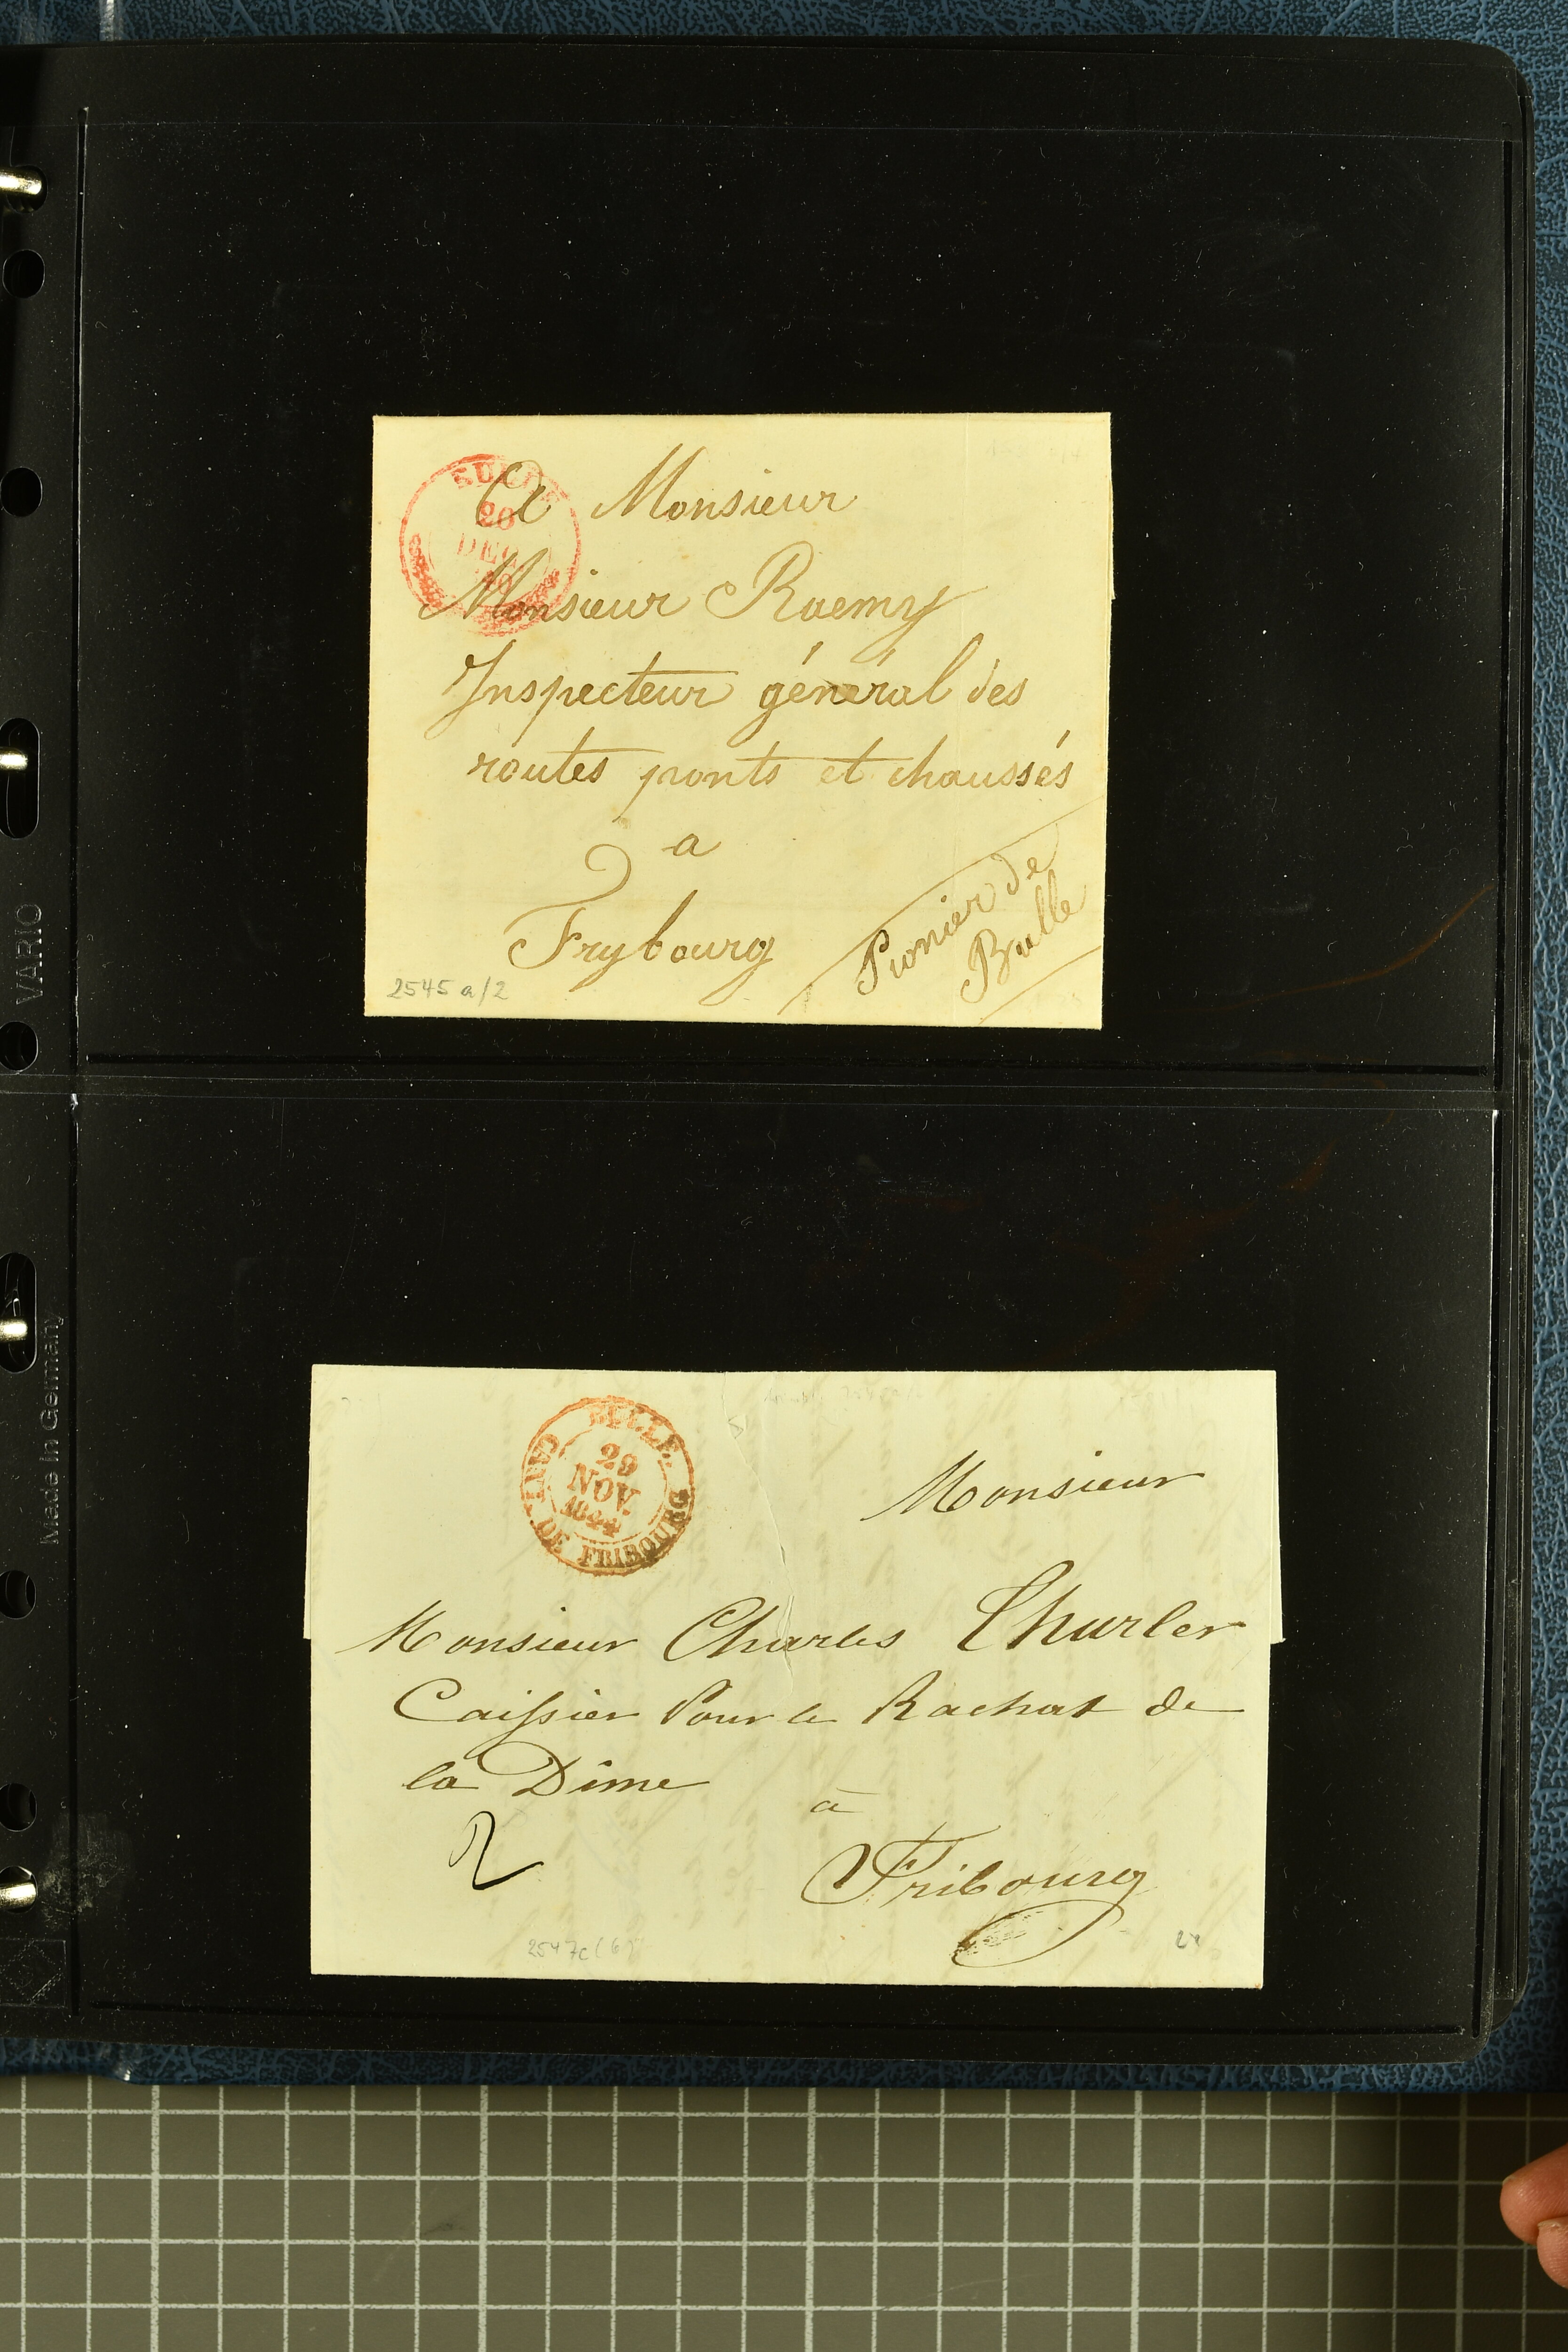 BULLE
20
DEC.
A Monsieur
Monsieur Raemy
Inspecteur général des
routes ponts et chaussés
a
Frybourg
Pionier de
Bulle
2545 a/2
VARIO
Made in Germany
BULLE.
29
NOV.
1844
CANT. DE FRIBOURG
Monsieur
Monsieur Charles Thurler
Caissier Pour le Rachat de
la Dime
à
2
Fribourg